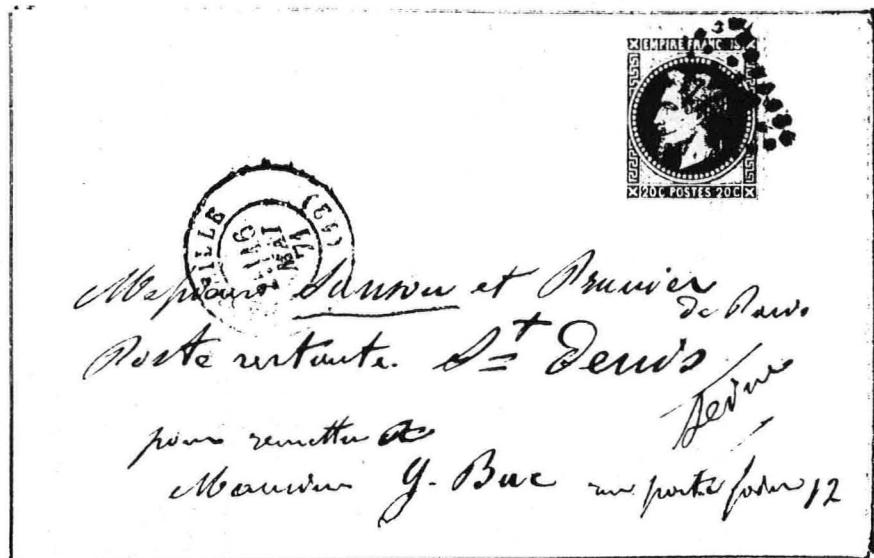 EMPIRE FRANÇAIS
20C POSTES 20C
LILLE
(59)
MAI
71
Messieurs Sanson et Prunier
de Paris
Poste restante. St Denis
Seine
pour remettre à
Monsieur G. Buc rue portefoin 12